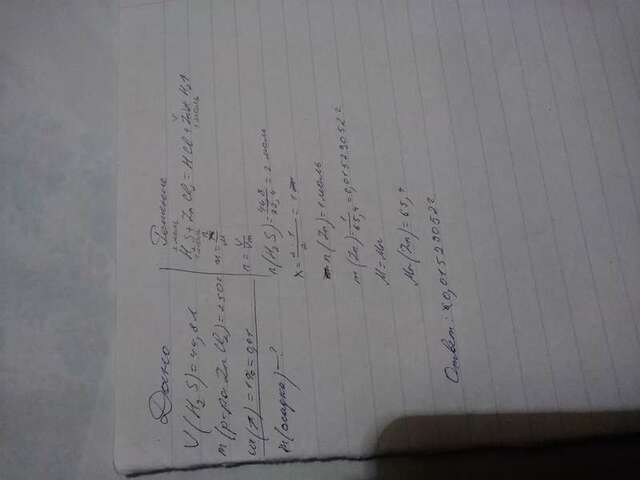 Дано
V(H₂S) = 44,8 л
m(р-ра ZnCl₂) = 250г
ω(%) = 1% = 0,01
m(осадка) - ?
Решение
H₂S + ZnCl₂ = HCl +
1 моль
n = m/M
n = V/Vm
n(H₂S) = 44,8/22,4 = 2 моль
n(Zn) = 1 моль
m(Zn) = 1/65,4 = 0,01529052 г
M = Mr
Mr(Zn) = 65,
Ответ: 0,01529052 г